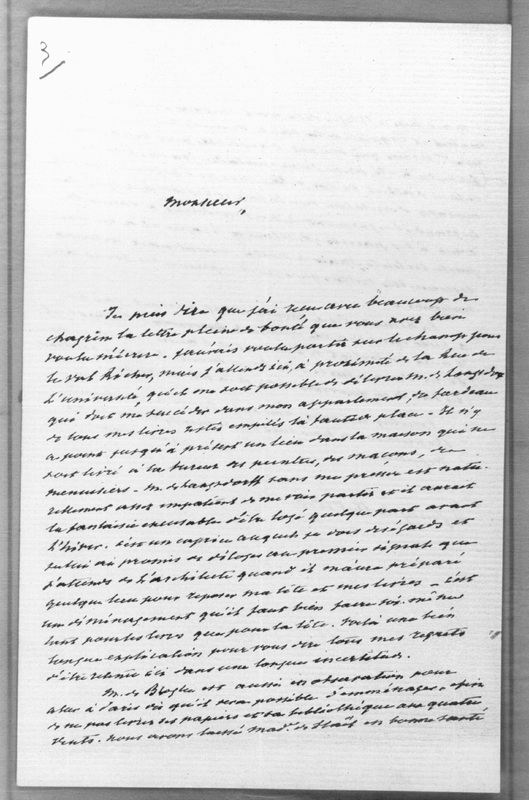 3
Monsieur,
Je puis dire que j'ai reçu avec beaucoup de
chagrin la lettre pleine de bonté que vous avez bien
voulu m'écrire. J'aurais voulu partir sur le champ pour
le Val Richer, mais j'attends ici, à proximité de la rue de
l'université, qu'il me soit possible de délivrer M. de Langsdorff
qui doit me succéder dans mon appartement, du fardeau
de tous mes livres restés empilés là faute de place. Il n'y
a point jusqu'à présent un lieu dans la maison qui ne
soit livré à la fureur des peintres, des maçons, des
menuisiers. M. de Langsdorff sans me presser est natu-
rellement assez impatient de me voir partir et il aurait
la fantaisie excusable d'être logé quelque part avant
l'hiver. C'est un caprice auquel je dois des égards et
je lui ai promis de déloger au premier signal que
j'attends de l'architecte quand il m'aura préparé
quelque lieu pour reposer ma tête et mes livres. C'est
un déménagement qu'il faut bien faire soi-même
tant pour les livres que pour la tête. Voilà une bien
longue explication pour vous dire tous mes regrets
d'être retenu ici dans une longue incertitude.
M. de Broglie est aussi en observation pour
aller à Paris dès qu'il sera possible d'emménager, afin
de ne pas livrer ses papiers et sa bibliothèque aux quatre
vents. Nous avons laissé Mad. de Staël en bonne santé